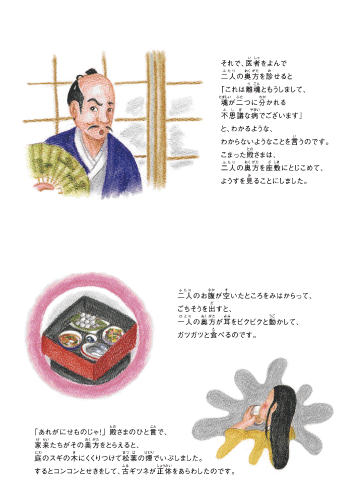 それで、医者をよんで
二人の奥方を診せると
「これは離魂ともうしまして、
魂が二つに分かれる
不思議な病でございます」
と、わかるような、
わからないようなことを言うのです。
こまった殿さまは、
二人の奥方を座敷にとじこめて、
ようすを見ることにしました。
二人のお腹が空いたところをみはからって、
ごちそうを出すと、
一人の奥方が耳をピクピクと動かして、
ガツガツと食べるのです。
「あれがにせものじゃ！」殿さまのひと言で、
家来たちがその奥方をとらえると、
庭のスギの木にくくりつけて松葉の煙でいぶしました。
するとコンコンとせきをして、古ギツネが正体をあらわしたのです。